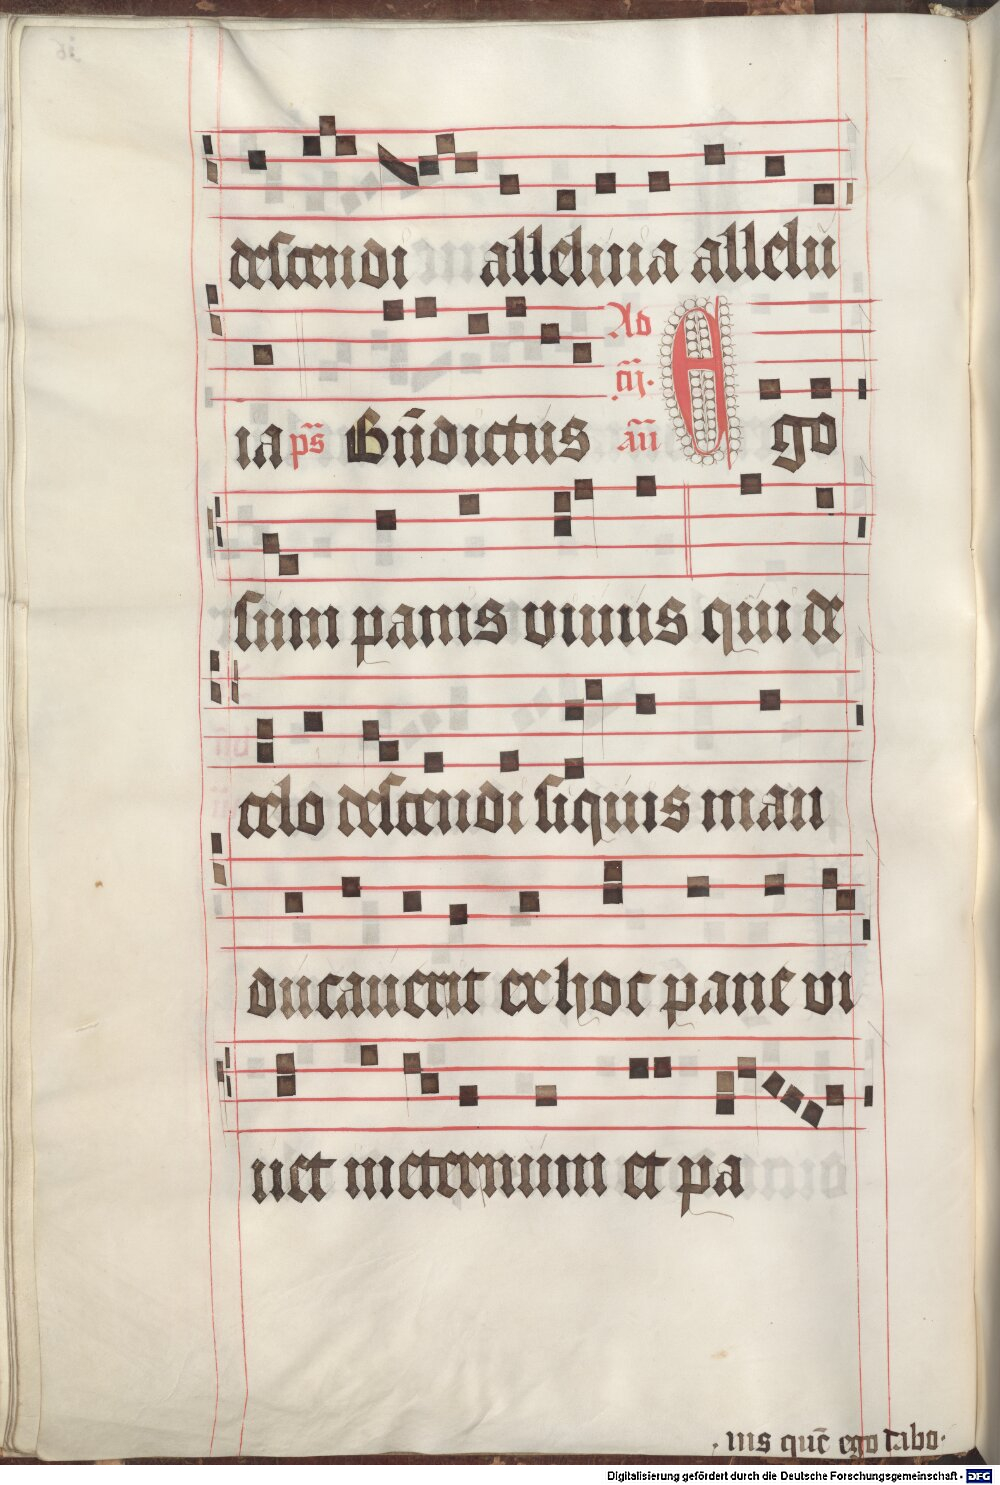 descendi alleluia allelu
ia ps̄ Bn̄dictus Ad
cm̄. an̄ Ego
sum panis viuus qui de
celo descendi siquis man
ducauerit ex hoc pane vi
uet ineternum et pa
. nis quē ego dabo.
Digitalisierung gefördert durch die Deutsche Forschungsgemeinschaft - DFG